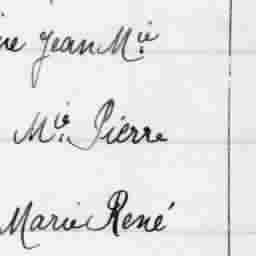 Jean M.ie
M.ie Pierre
Marie René